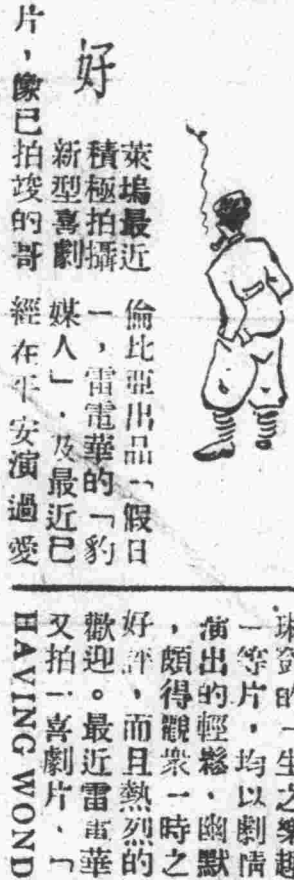 好
萊塢最近
積極拍攝
新型喜劇
片，像已拍竣的哥
倫比亞出品「假日
」，雷電華的「豹
媒人」．及最近已
經在平安演過愛
琳登的一生之樂趣
」等片，均以劇情
演出的輕鬆、幽默
，頗得觀衆一時之
好評，而且熱烈的
歡迎。最近雷電華
又拍一喜劇片、「
HAVING WOND